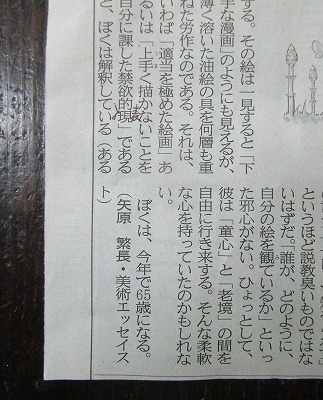 する。その絵は一見すると「下
手な漫画」のようにも見えるが、
薄く溶いた油絵の具を何層も重
ねた労作なのである。それは、
いわば「適当を極めた絵画」あ
るいは「上手く描かないことを
自分に課した禁欲的現」である
と、ぼくは解釈している（ある
というほど説教臭いものではな
いはずだ。「誰が、どのように、
自分の絵を観ているか」といっ
た邪心がない。ひょっとして、
彼は「童心」と「老境」の間を
自由に行き来する。そんな柔軟
な心を持っていたのかもしれな
い。
ぼくは、今年で65歳になる。
（矢原　繁長・美術エッセイス
ト）